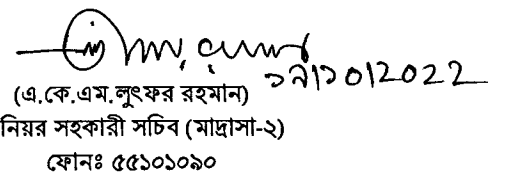 ১৯/১০/2022
(এ.কে.এম.লুৎফর রহমান)
নিয়র সহকারী সচিব (মাদ্রাসা-২)
ফোনঃ ৫৫১০১০৯০